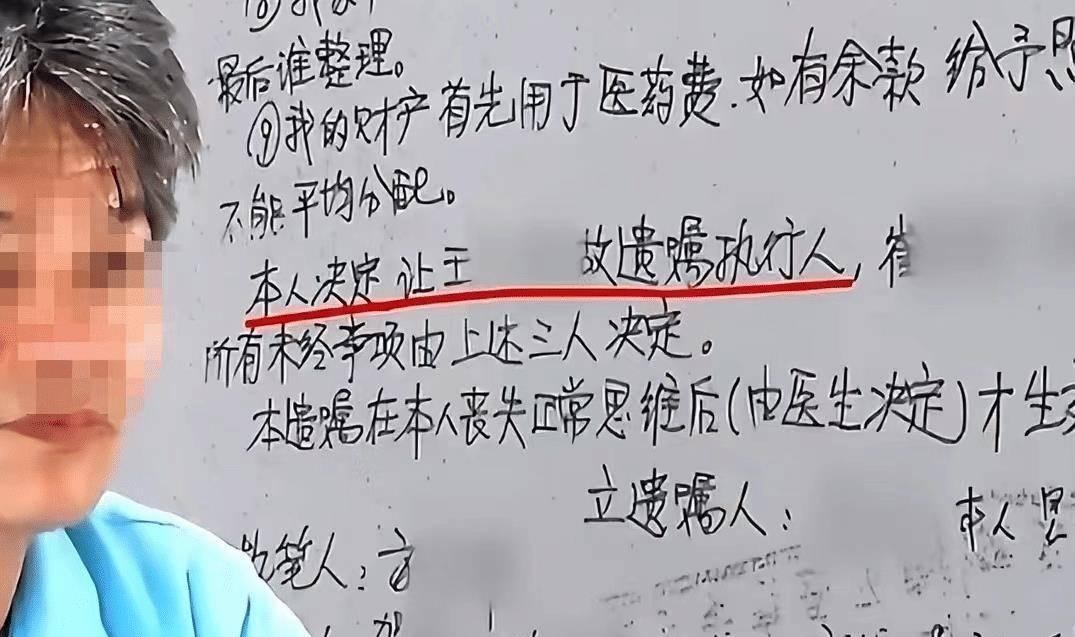 最后谁整理。
⑨我的财产首先用于医药费.如有余款给予
不能平均分配。
本人决定让王 故遗嘱执行人,
所有未经事项由上述三人决定。
本遗嘱在本人丧失正常思维后(由医生决定)才生
立遗嘱人:
本人
执笔人: